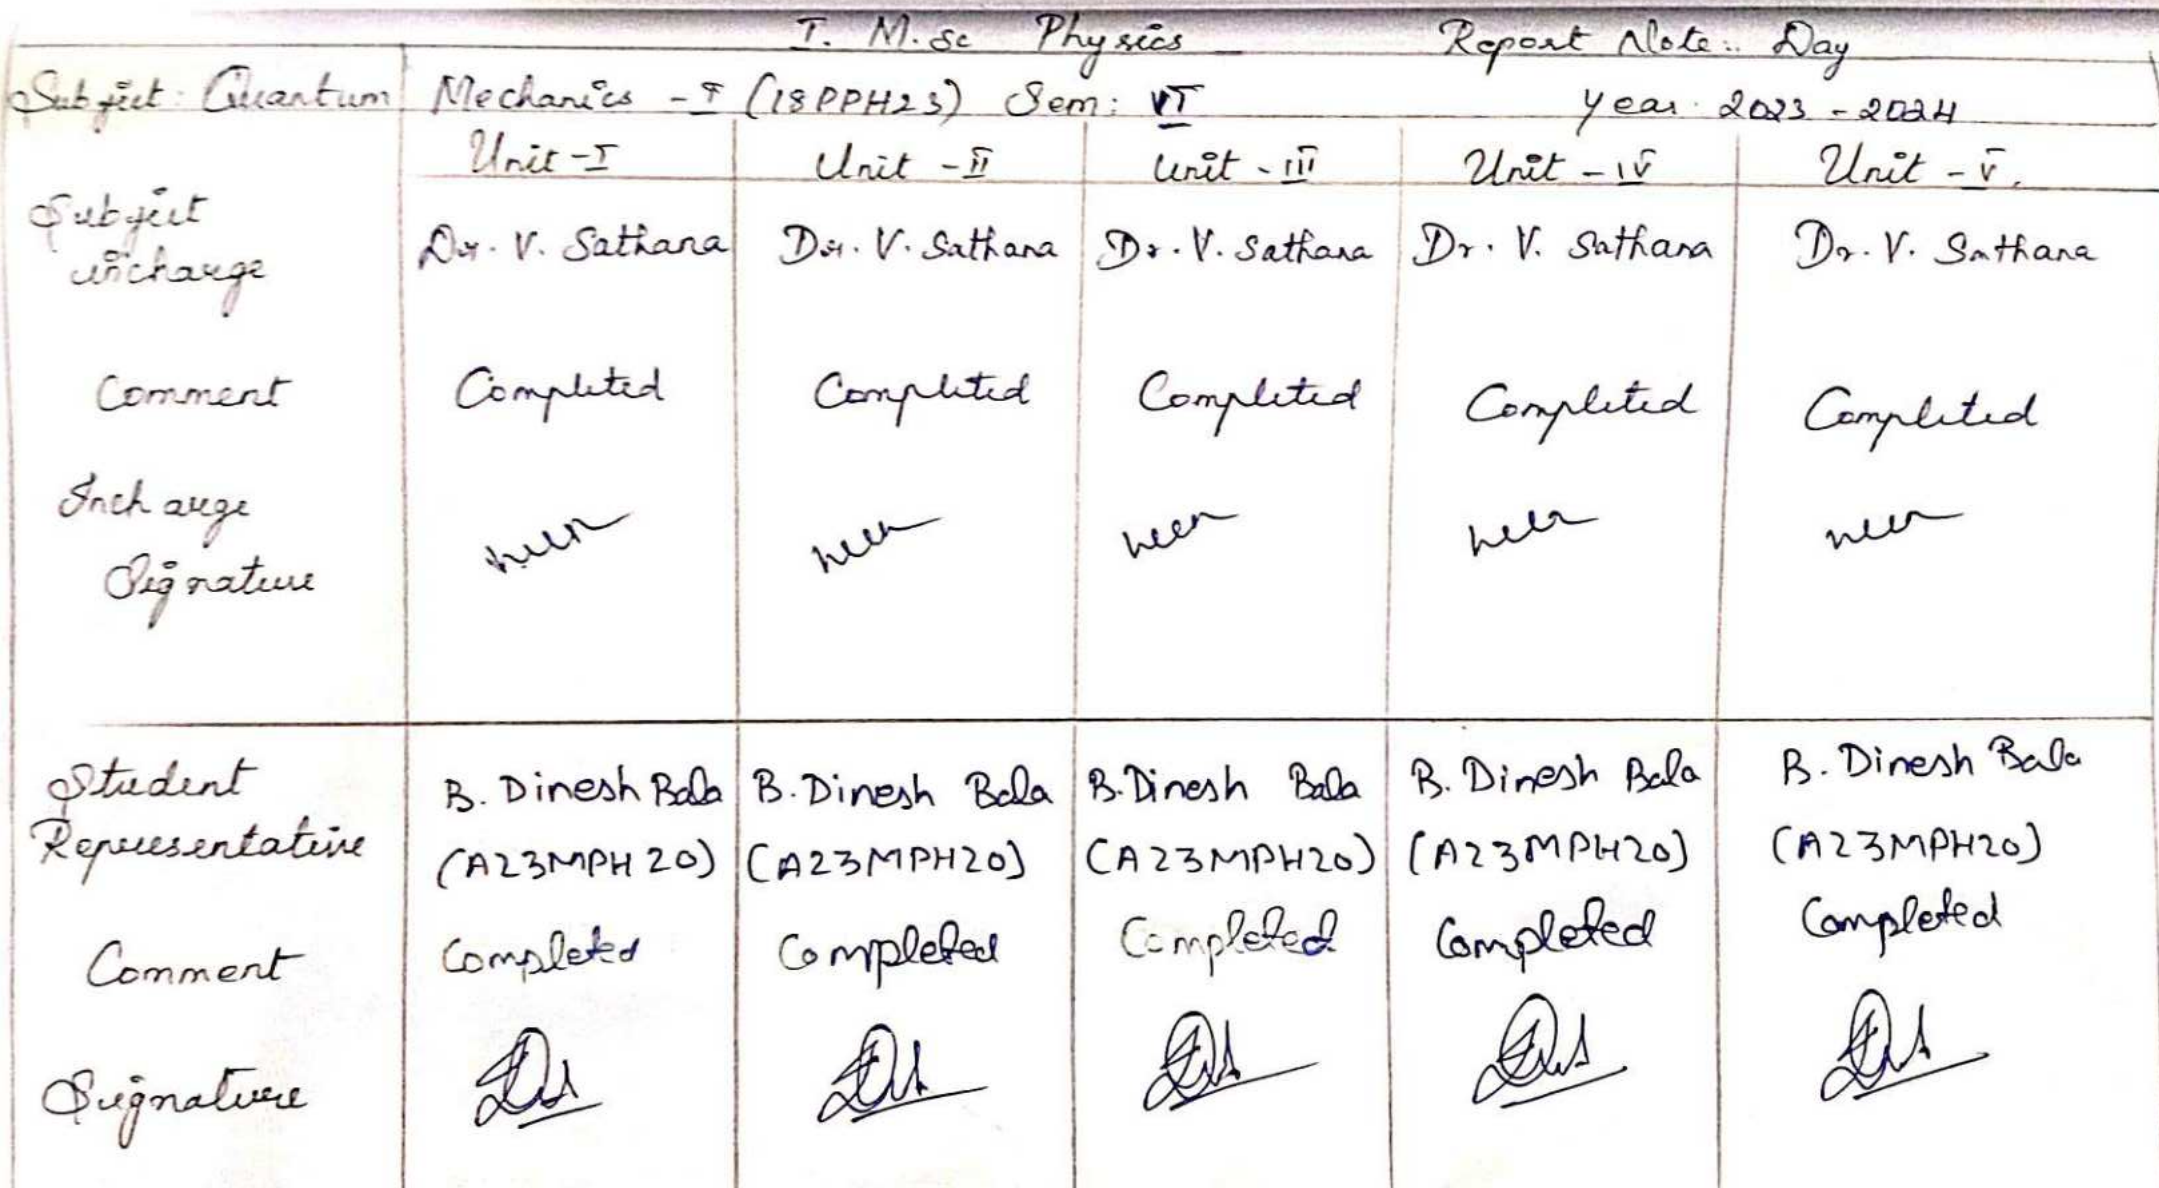 I. M.Sc Physics Report Note: Day
Subject: Quantum Mechanics - I (18PPH23) Sem: VI Year: 2023 - 2024
Unit - I Unit - II Unit - III Unit - IV Unit - V.
Subject Incharge Dr. V. Sathana Dr. V. Sathana Dr. V. Sathana Dr. V. Sathana Dr. V. Sathana
Comment Completed Completed Completed Completed Completed
Incharge
Signature
Student B. Dinesh Bala B. Dinesh Bala B. Dinesh Bala B. Dinesh Bala B. Dinesh Bala
Representative (A23MPH20) (A23MPH20) (A23MPH20) (A23MPH20) (A23MPH20)
Comment Completed Completed Completed Completed Completed
Signature